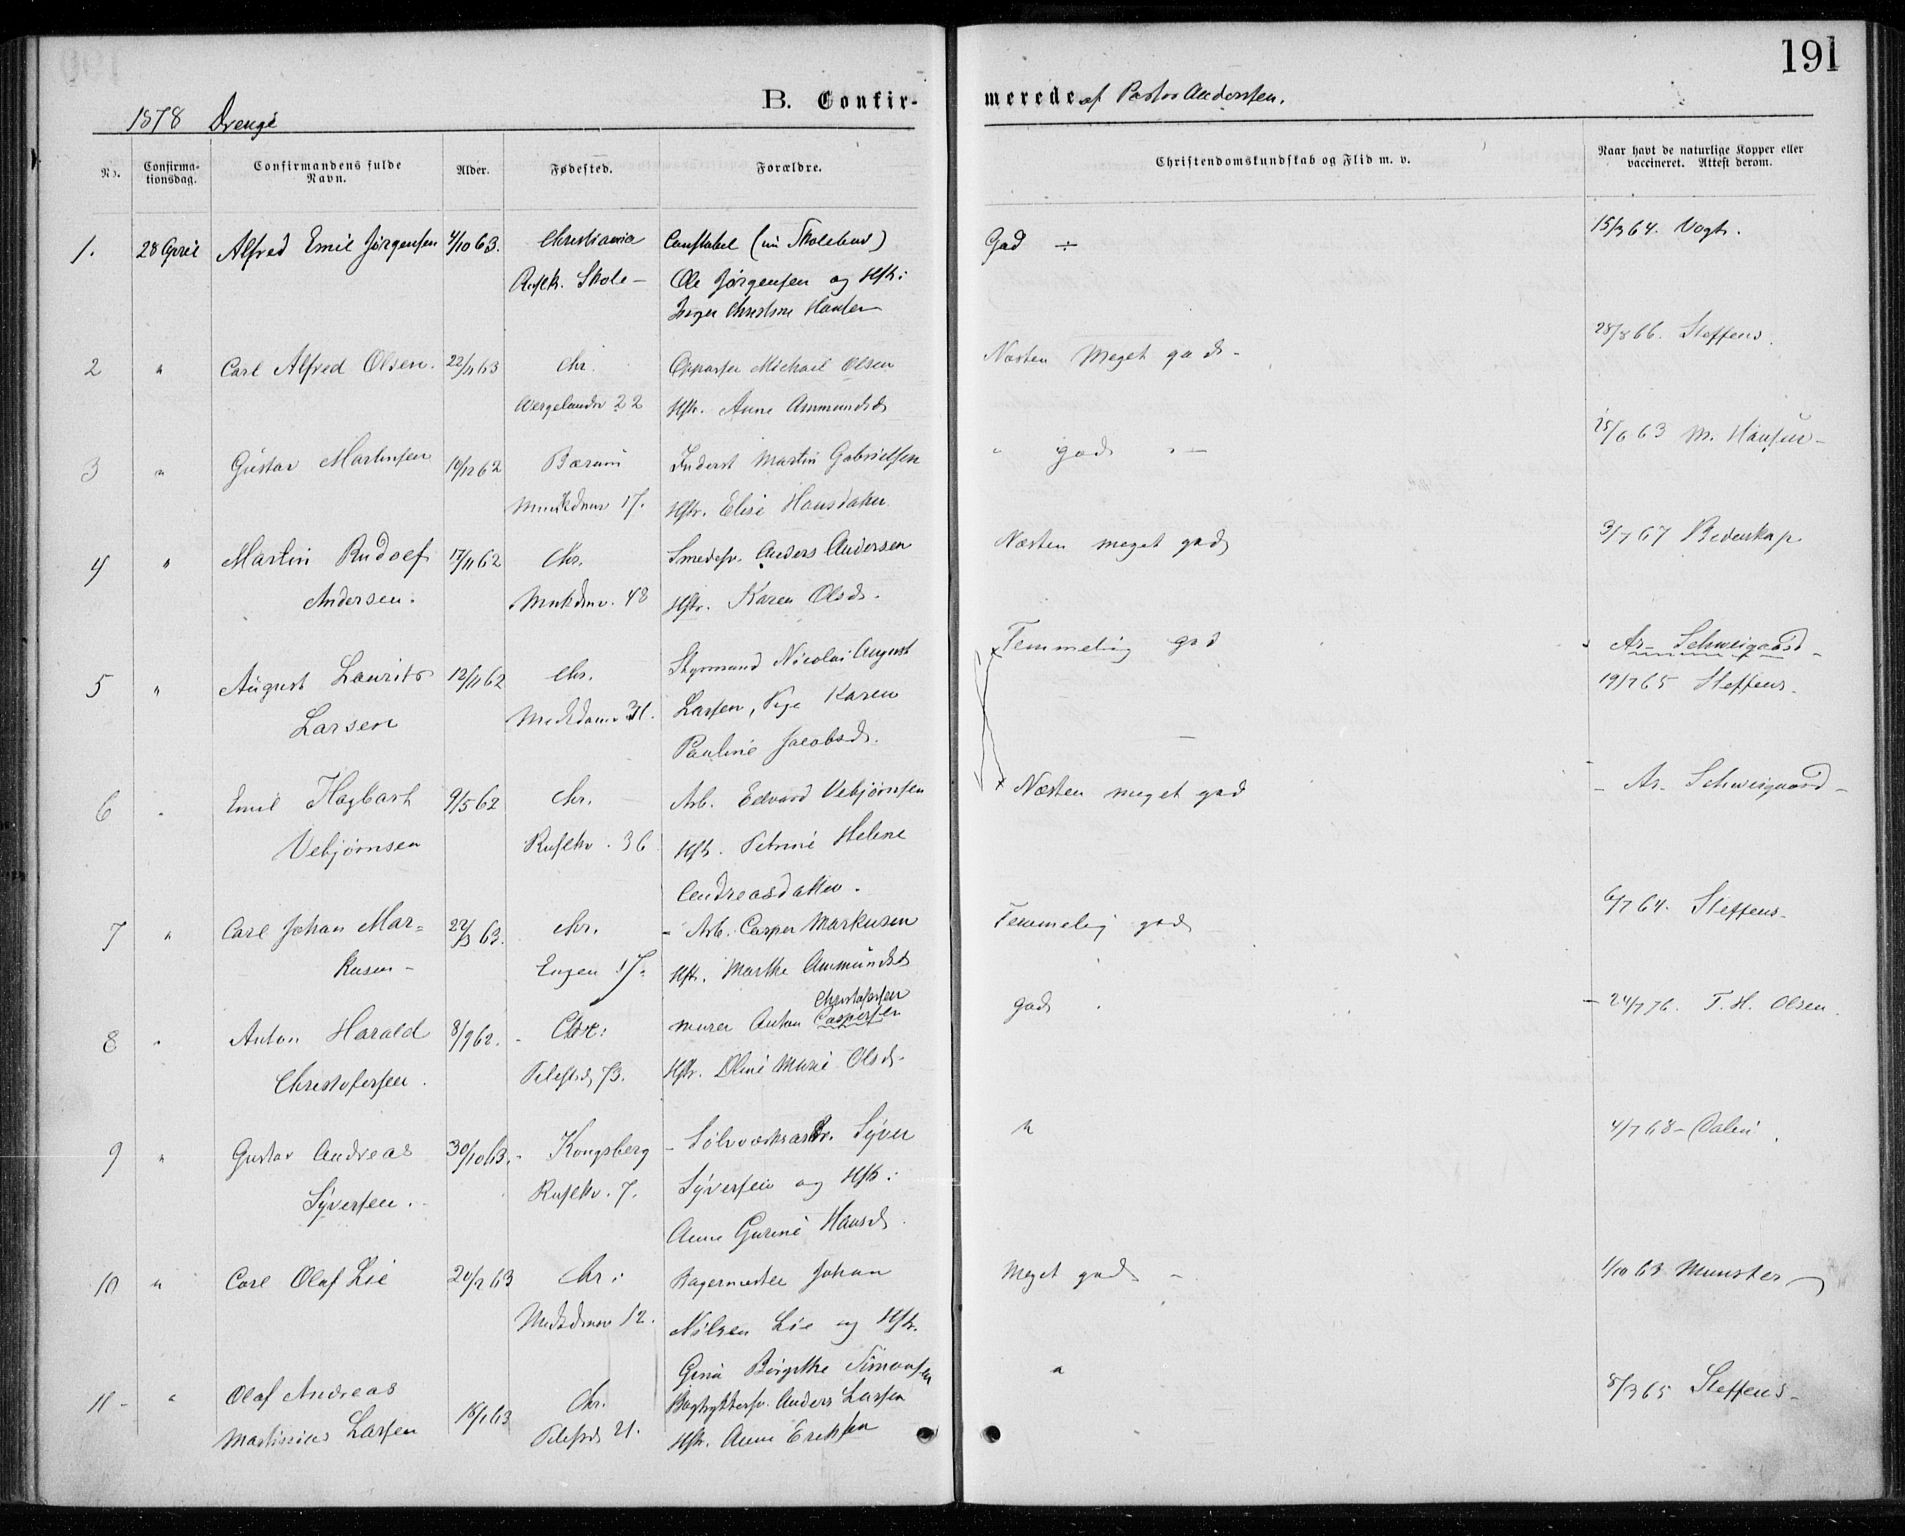 191
1878 Drenge
B. Confir-
merede af Pastor Anderssen.
No.
Confirma-
tionsdag.
Confirmandens fulde
Navn.
Alder.
Fødested.
Forældre.
Christendomskundskab og Flid m. v.
Naar havt de naturlige Kopper eller
vaccineret. Attest derom.
1. 28 April Alfred Emil Jørgensen 4/10 63. Christiania Constabel (nu Skolebud) God ÷ 15/3 64. Vogt.
Rusløk. Skole – Ole Jørgensen og Hstr:
Inger Christine Hansen
2 " Carl Alfred Olsen. 22/11 63 Chr. Michael Olsen Næsten Meget god - 28/8 66. Steffens.
Wergelandsv 22 Hstr. Anne Ammundsd
3 " Gustav Martinsen 10/12 62 Bærum Inderst Martin Gabrielsen " god " – 15/6 63 M. Hansen –
Munkedmv 17. Hstr. Elise Hansdatter
4 " Martin Rudolf 17/11 62 Chr. Smedesv. Anders Andersen Næsten meget god 3/7 67 Bidenkap
Andersen. Mnkdmv. 48 Hstr. Karen Olsd.
5 " August Laurits 12/11 62 Chr. Styrmand Nicolai August Temmelig god Ar– Schweigaard –
Larsen Mnkdamv 31. Larsen, Pige Karen 19/7 65 Steffens.
Pauline Jacobsd.
6 " Emil Hagbart 9/5 62 Chr. Arb. Edvard Vebjørnsen Næsten meget god – Ar– Schweigaard –
Vebjørnsen Rusløkv. 36 Hstr. Petrine Helene
Andreasdatter.
7 " Carl Johan Mar= 22/3 63. Chr. – Arb. Casper Markusen Temmelig god 6/7 64. Steffens.
kusen – Engen 17. Hstr. Marthe Ammundsd
8 " Anton Harald 8/9 62. – Chr: Murer Anton Caspersen Christofersen god . – 24/7 76. T. H. Olsen.
Christofersen. Pilestd 73. Hstr. Oline Marie Olsd.
9 " Gustav Andreas 30/10 63. – Kongsberg – Sølvværksarb. Syver " 4/7 68 – Dalen.
Syversen. Rusløkv. 7. Syversen og Hstr:
Anne Gurine Hansd.
10 " Carl Olaf Lie 20/12 63 Chr: Bagermester Johan Meget god – 1/10 63 Munster
Mnkdmv 12. Nilsen Lie og Hstr.
Gina Birgitte Simonsen
11 – " Olaf Andreas 18/1 63 Chr. Anders Larsen " 8/3 65 Steffens –
Martinius Larsen Pilestd 21. Hstr. Anne Eriksen